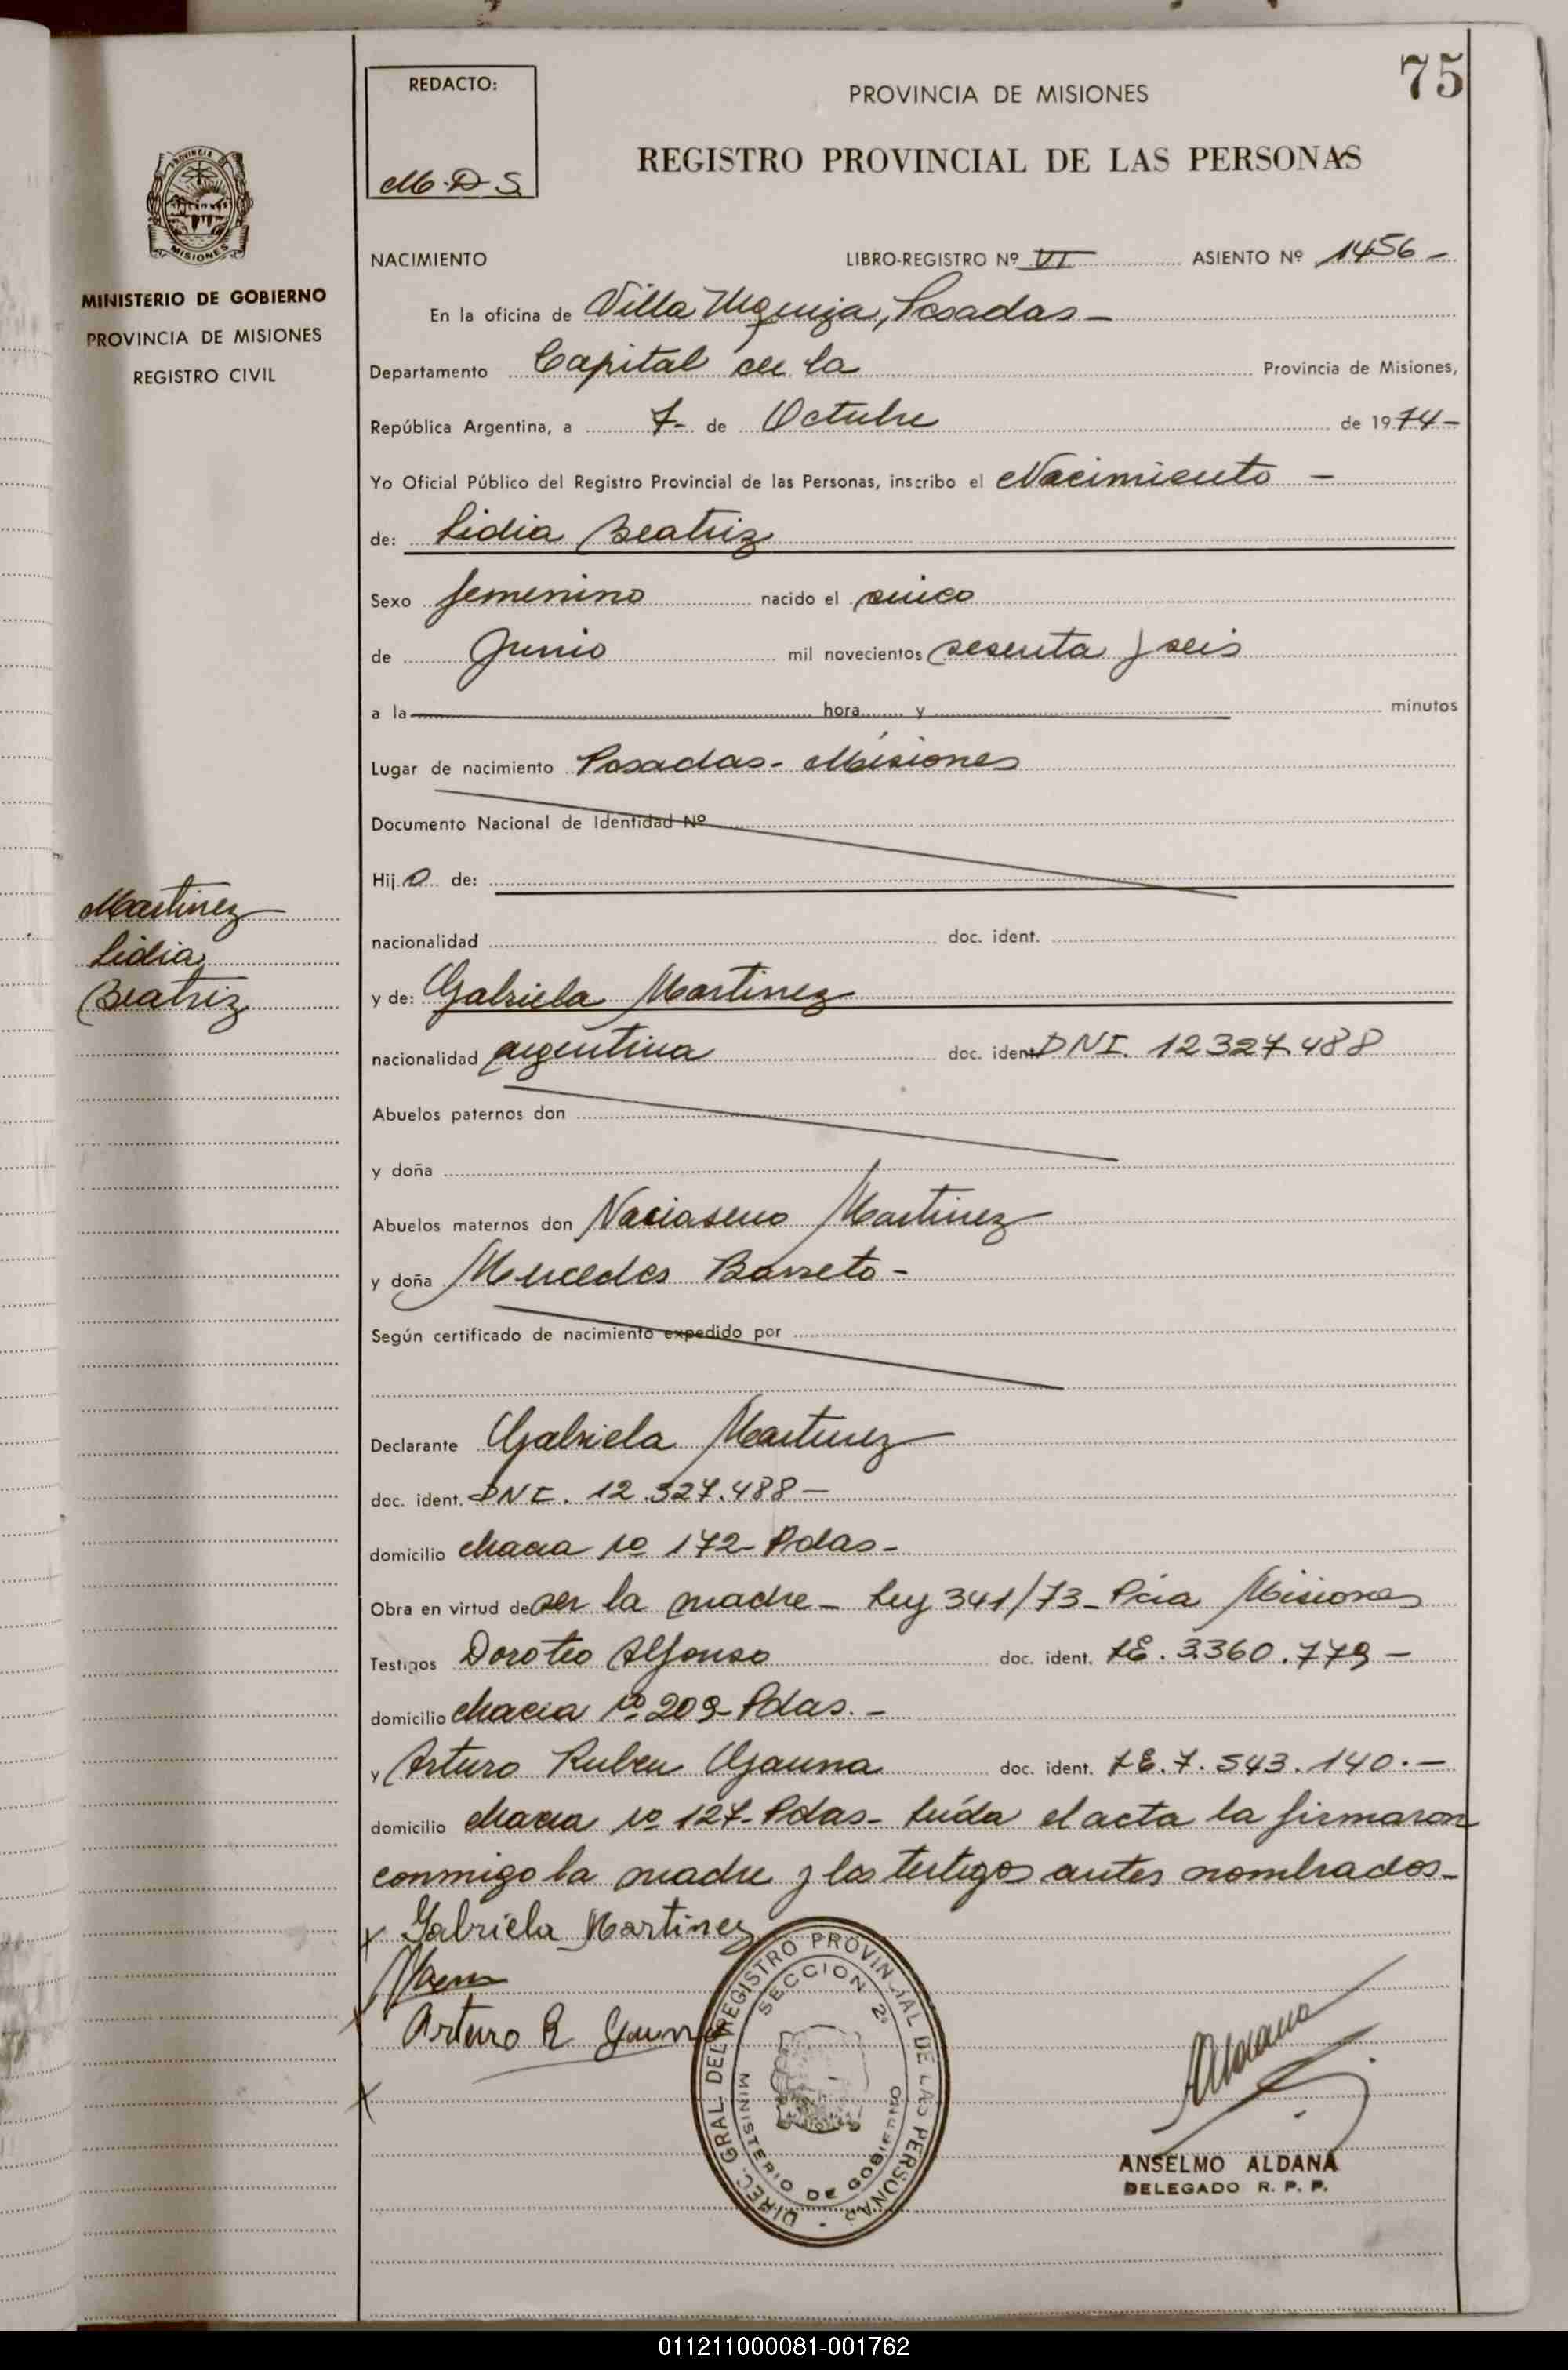 75
REDACTO:
M.D.S.
PROVINCIA DE MISIONES
REGISTRO PROVINCIAL DE LAS PERSONAS
PROVINCIA DE MISIONES
MINISTERIO DE GOBIERNO
PROVINCIA DE MISIONES
REGISTRO CIVIL
Martinez
Lidia
Beatriz
NACIMIENTO LIBRO-REGISTRO Nº VI ASIENTO Nº 1456-
En la oficina de Villa Urquiza, Posadas-
Departamento Capital de la Provincia de Misiones,
República Argentina, a 7- de Octubre de 1974-
Yo Oficial Público del Registro Provincial de las Personas, inscribo el Nacimiento -
de: Lidia Beatriz
Sexo femenino nacido el cinco
de Junio mil novecientos sesenta y seis
a la hora y minutos
Lugar de nacimiento Posadas- Misiones
Documento Nacional de Identidad Nº
Hija de:
nacionalidad doc. ident.
y de: Gabriela Martinez
nacionalidad argentina doc. ident. DNI. 12327.488
Abuelos paternos don
y doña
Abuelos maternos don Martinez
y doña Mercedes Barreto-
Según certificado de nacimiento expedido por
Declarante Gabriela Martinez
doc. ident. DNI. 12.327.488-
domicilio chacra Nº 172- Pdas-
Obra en virtud de ser la madre- Ley 341/73- Pcia Misiones
Testigos Doroteo Alfonso doc. ident. LE. 3360.779-
domicilio chacra Nº 209- Pdas.-
y Arturo Ruben Gauna doc. ident. LE. 7.543.140.-
domicilio chacra Nº 127- Pdas- Leída el acta la firmaron
conmigo la madre y los testigos antes nombrados-
x Gabriela Martinez
Arturo R Gauna
DIREC. GRAL. DEL REGISTRO PROVINCIAL DE LAS PERSONAS -
SECCION 2ª
MINISTERIO DE GOBIERNO
Aldana
ANSELMO ALDANA
DELEGADO R. P. P.
011211000081-001762